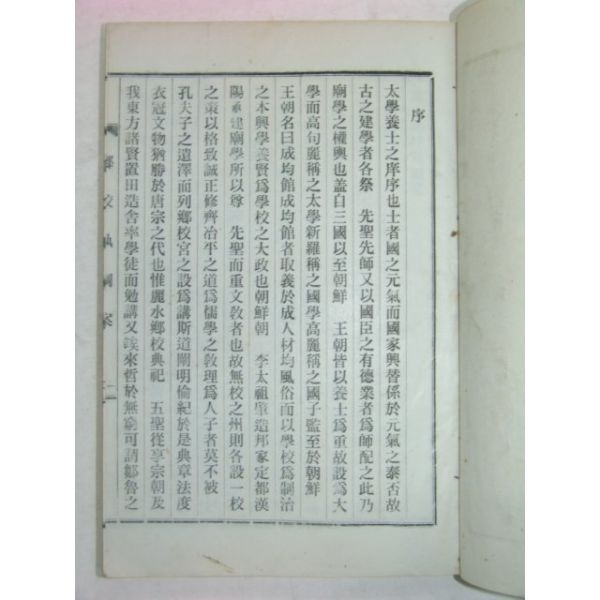 序
太學養士之庠序也士者國之元氣而國家興替係於元氣之泰否故
古之建學者各祭 先聖先師又以國臣之有德業者爲師配之此乃
廟學之權輿也蓋自三國以至朝鮮 王朝皆以養士爲重故設爲大
學而高句麗稱之太學新羅稱之國學高麗稱之國子監至於朝鮮
王朝名曰成均館成均館者取義於成人材均風俗而以學校爲制治
之本興學養賢爲學校之大政也朝鮮朝 李太祖肇造邦家定都漢
陽亟建廟學所以尊 先聖而重文敎者也故無校之州則各設一校
之策以格致誠正修齊治平之道爲儒學之敎理爲人子者莫不被
孔夫子之遺澤而列鄕校宮之設爲講斯道闡明倫紀於是典章法度
衣冠文物猶勝於唐宗之代也惟麗水鄕校典祀 五聖從享宗朝及
我東方諸賢置田造舍率學徒而勉講又俟來哲於無窮可謂鄒魯之
鄕校執綱案
二